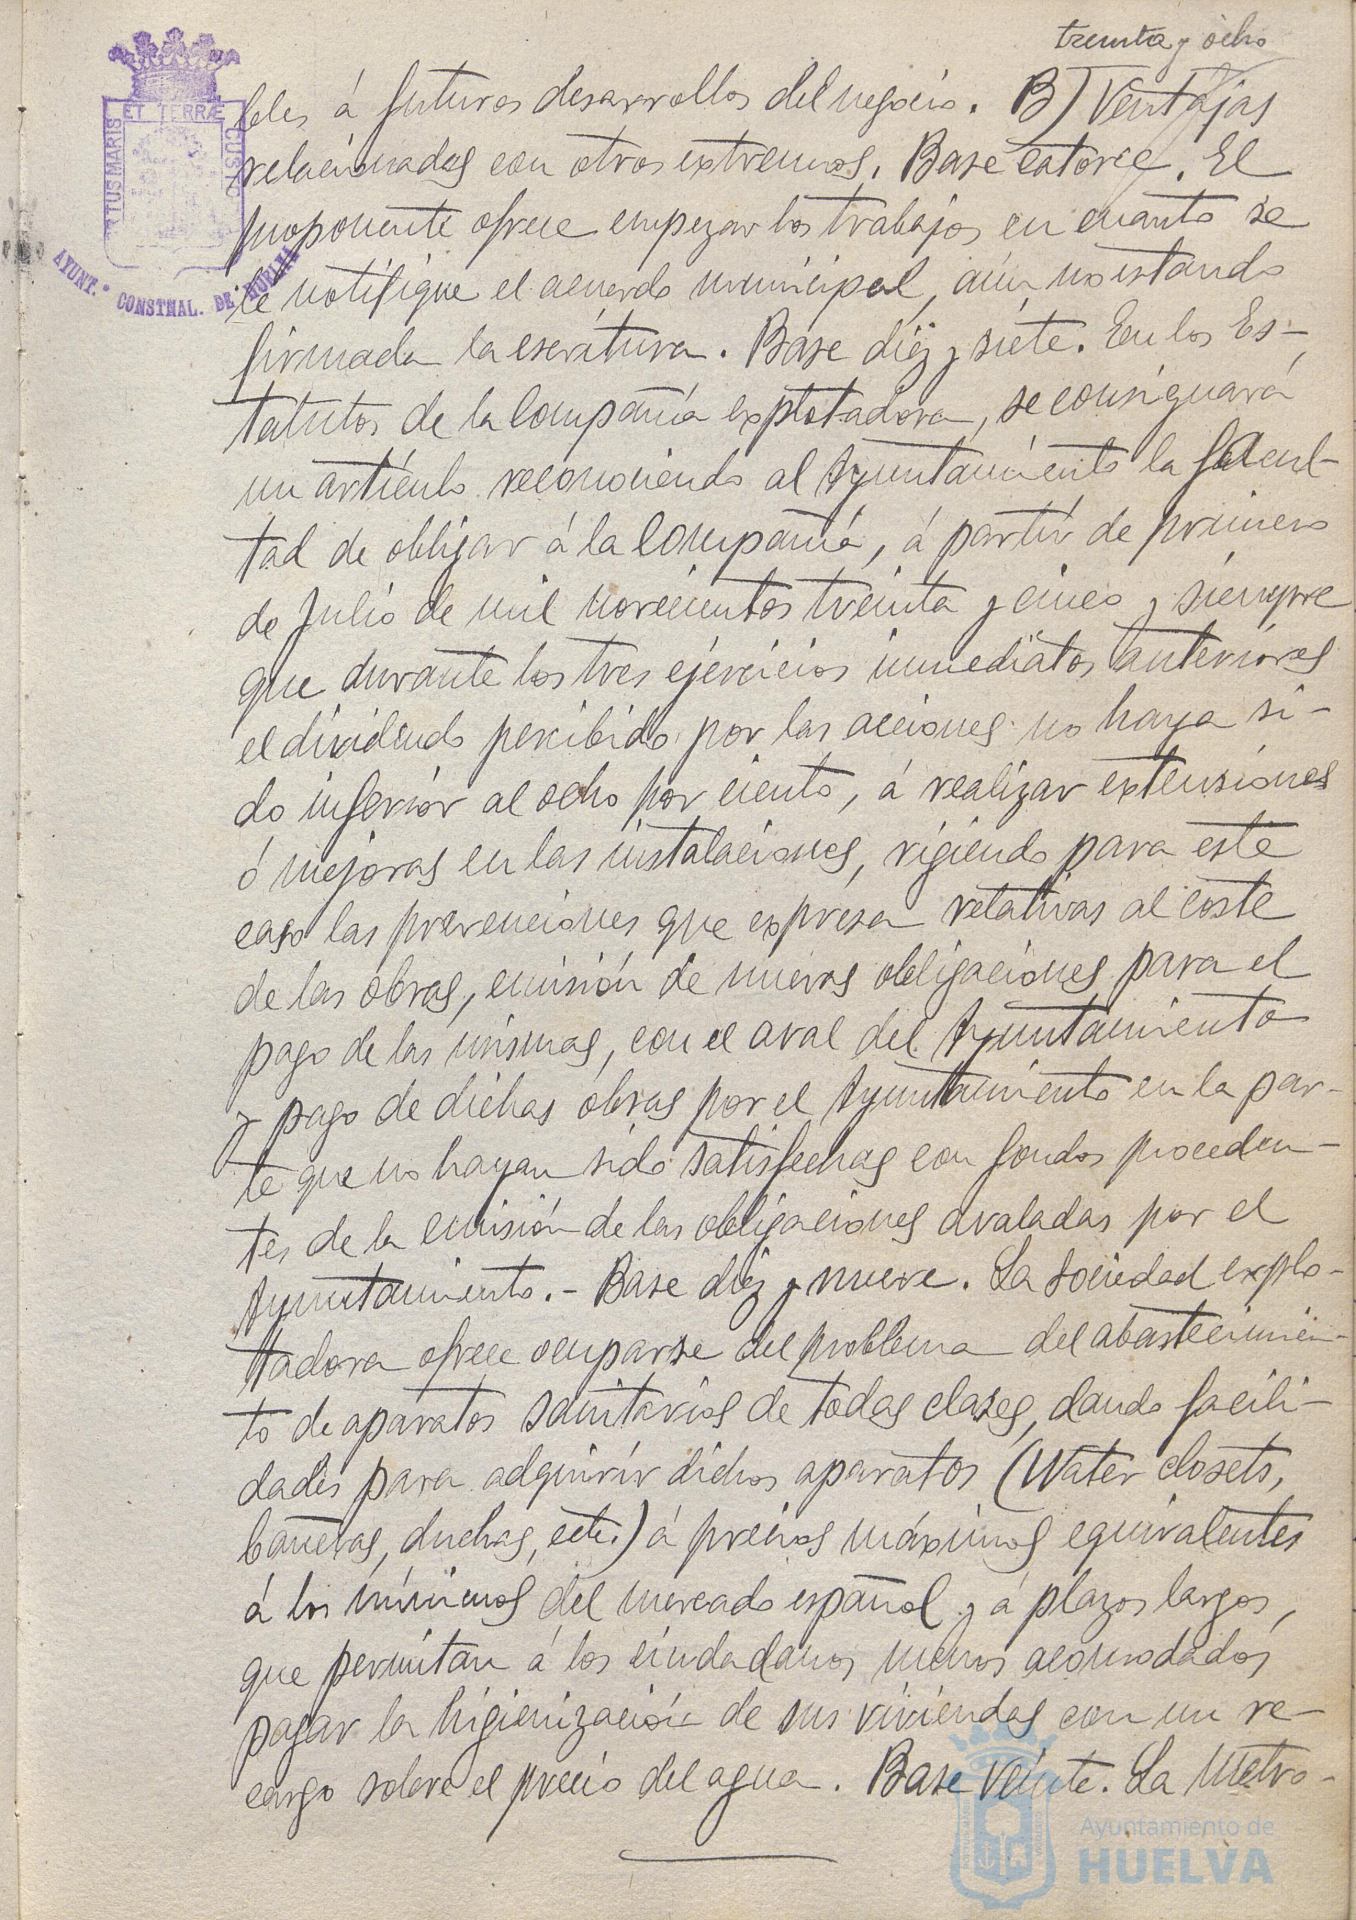 treinta y ocho
PORTUS MARIS ET TERRÆ CUSTODIA
AYUNT.º CONSTNAL. DE HUELVA
bles á futuros desarrollos del negocio. B) Ventajas
relacionadas con otros extremos. Base catorce. El
proponente ofrece empezar los trabajos en cuanto se
le notifique el acuerdo municipal, aún no estando
firmada la escritura. Base diez y siete. En los Es-
tatutos de la Compañía explotadora, se consignará
un artículo reconociendo al Ayuntamiento la facul-
tad de obligar á la Compañía, á partir de primero
de Julio de mil novecientos treinta y cinco y siempre
que durante los tres ejercicios inmediatos anteriores
el dividendo percibido por las acciones no haya si-
do inferior al ocho por ciento, á realizar extensiones
ó mejoras en las instalaciones, rigiendo para este
caso las prevenciones que expresa relativas al coste
de las obras, emisión de nuevas obligaciones para el
pago de las mismas, con el aval del Ayuntamiento
y pago de dichas obras por el Ayuntamiento en la par-
te que no hayan sido satisfechas con fondos proceden-
tes de la emisión de las obligaciones avaladas por el
Ayuntamiento.- Base diez y nueve. La Sociedad explo-
tadora ofrece ocuparse del problema del abastecimien-
to de aparatos sanitarios de todas clases, dando facili-
dades para adquirir dichos aparatos (Water closets,
bañeras, duchas, ectc.) á precios máximos equivalentes
á los mínimos del mercado español y á plazos largos,
que permitan á los ciudadanos menos acomodados
pagar la higienización de sus viviendas con un re-
cargo sobre el precio del agua. Base veinte. La Metro-
Ayuntamiento de
HUELVA